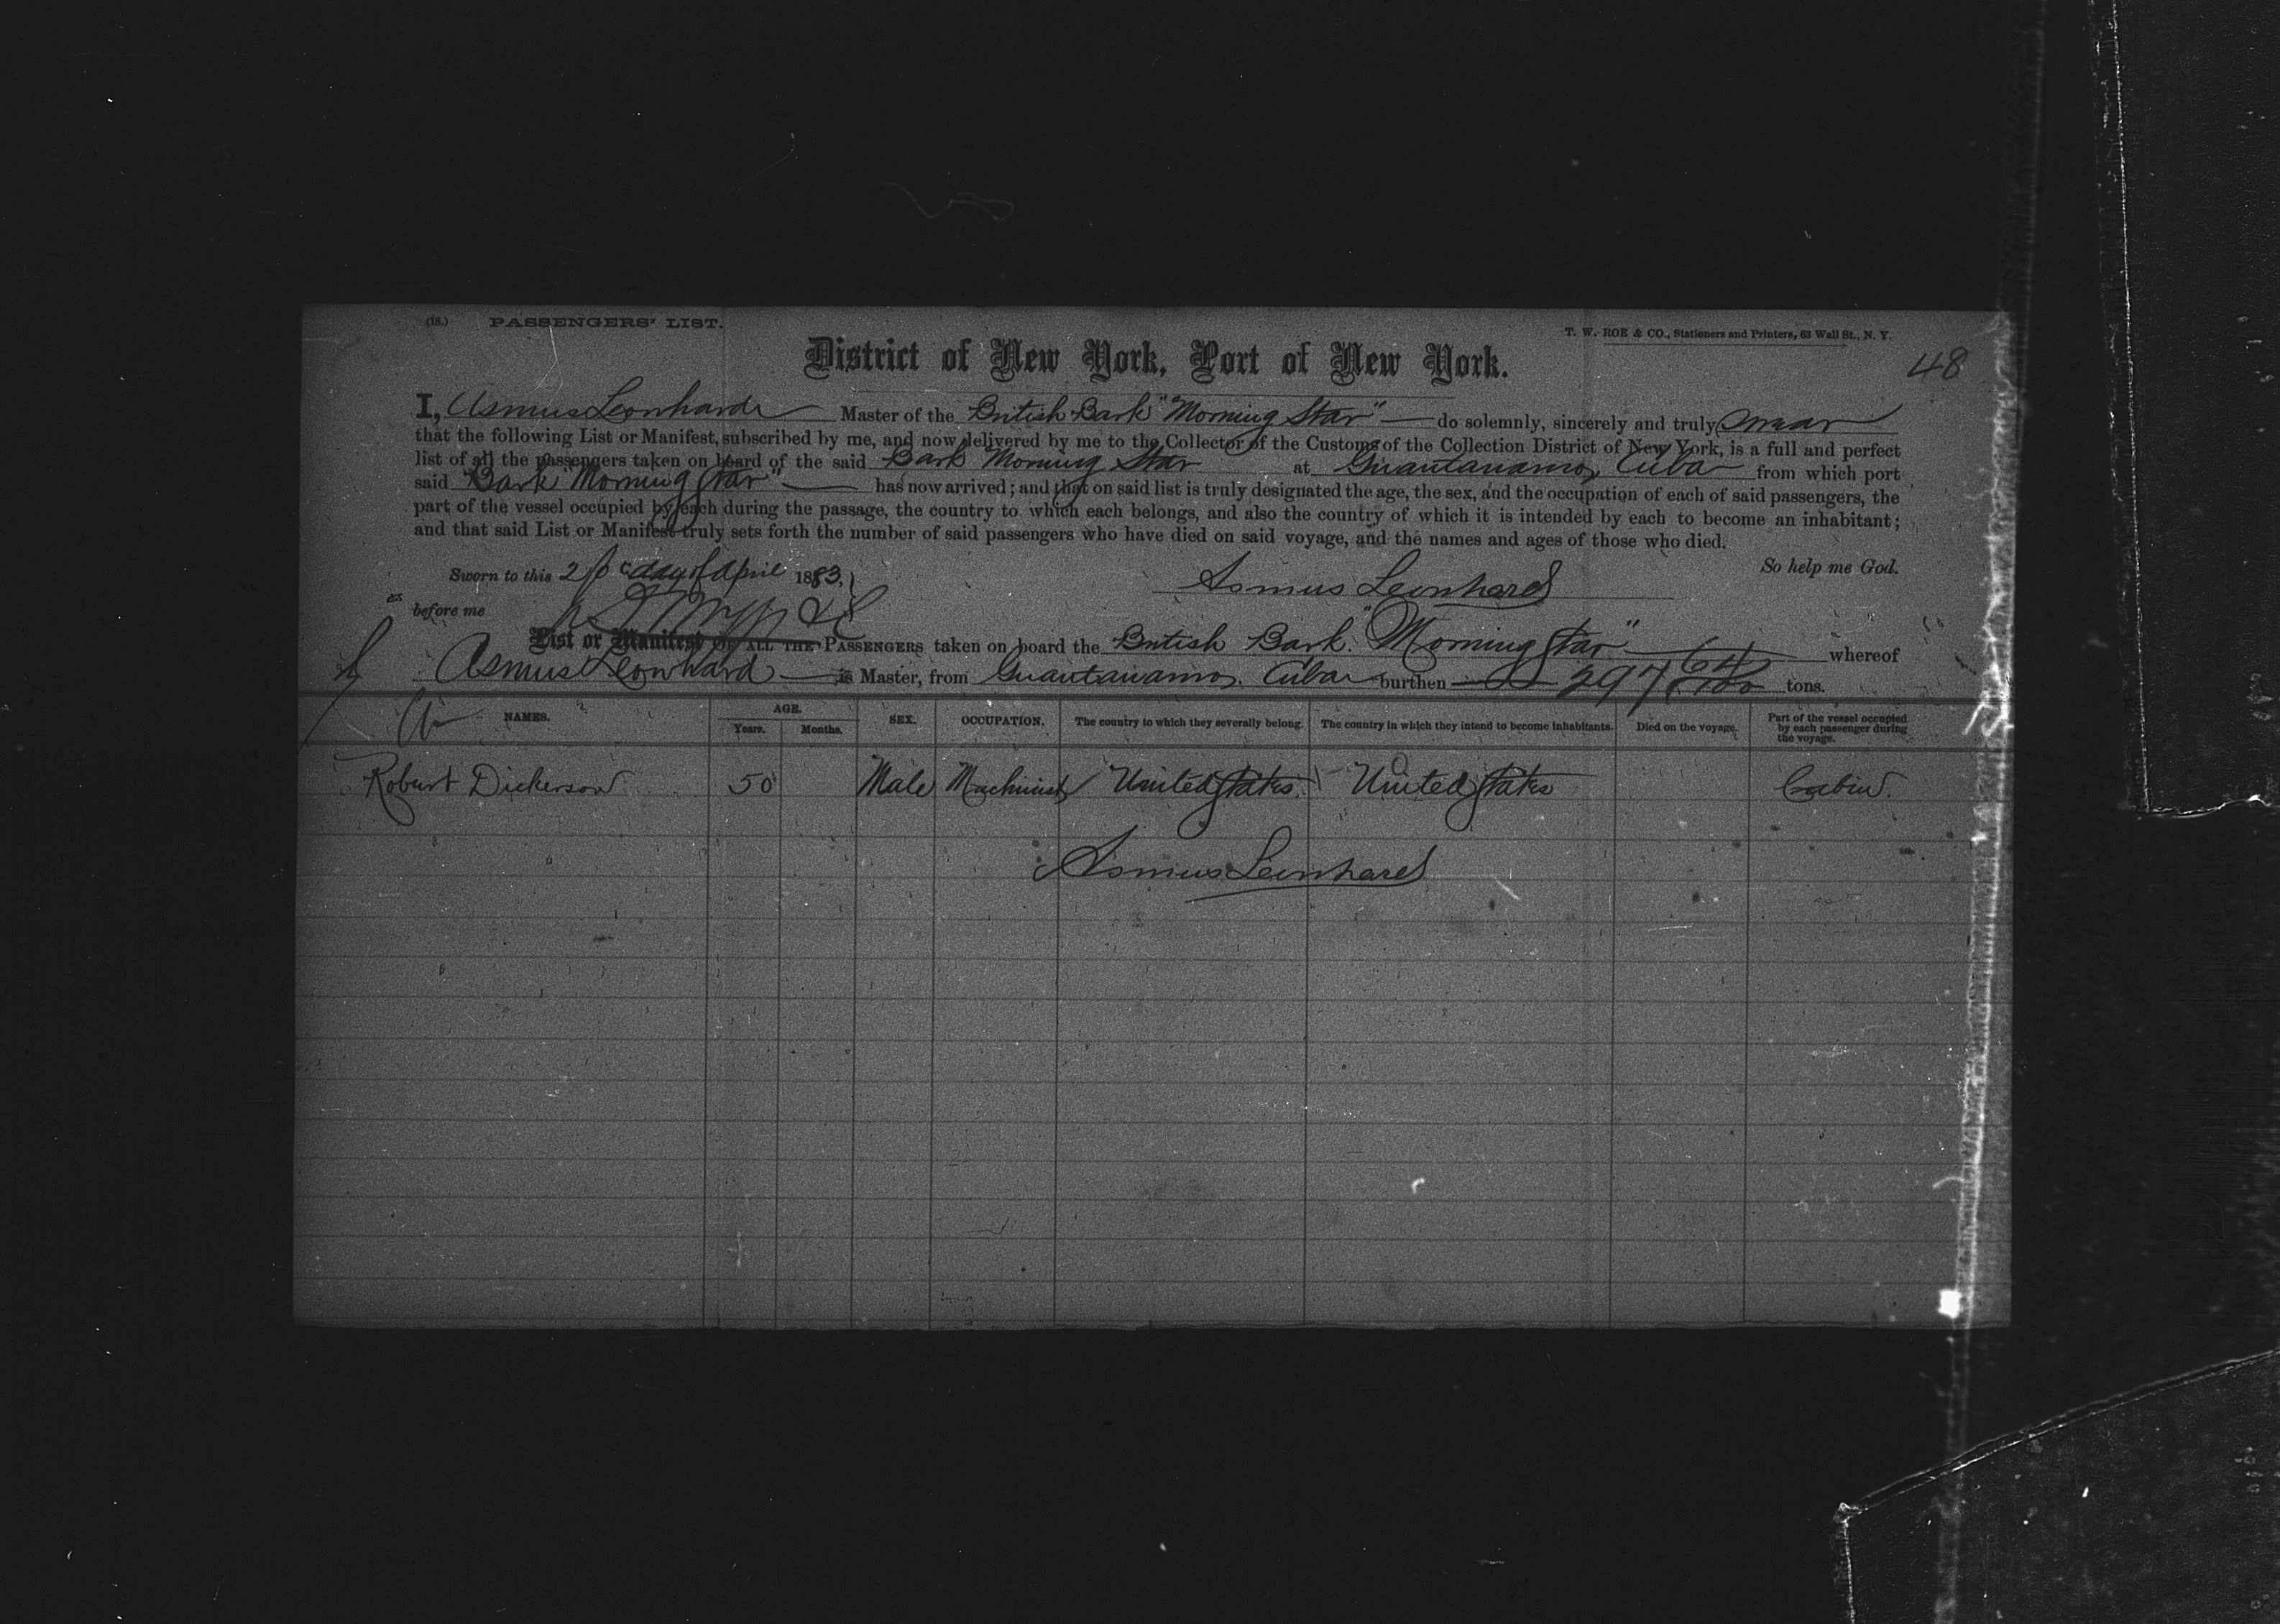 (18.) PASSENGERS' LIST.
T. W. ROE & CO., Stationers and Printers, 63 Wall St., N. Y.
District of New York, Port of New York.
48
I, Asmus Leonhard Master of the British Bark "Morning Star" do solemnly, sincerely and truly swear
that the following List or Manifest, subscribed by me, and now delivered by me to the Collector of the Customs of the Collection District of New York, is a full and perfect
list of all the passengers taken on board of the said Bark Morning Star at Guantanamo, Cuba from which port
said Bark "Morning Star" has now arrived; and that on said list is truly designated the age, the sex, and the occupation of each of said passengers, the
part of the vessel occupied by each during the passage, the country to which each belongs, and also the country of which it is intended by each to become an inhabitant;
and that said List or Manifest truly sets forth the number of said passengers who have died on said voyage, and the names and ages of those who died.
Sworn to this day of April 1883,
So help me God.
Asmus Leonhard
before me
List or Manifest OF ALL THE PASSENGERS taken on board the British Bark "Morning Star" whereof
Asmus Leonhard is Master, from Guantanamo, Cuba burthen 297 64/100 tons.
NAMES. AGE. Years. Months. SEX. OCCUPATION. The country to which they severally belong. The country in which they intend to become inhabitants. Died on the voyage. Part of the vessel occupied by each passenger during the voyage.
Robert Dickerson 50 Male Machinist United States United States Cabin.
Asmus Leonhard